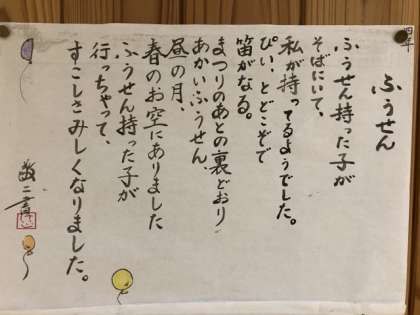 四年
ふうせん
ふうせん持った子が
そばにいて、
私が持ってるようでした。
ぴい、とどこぞで
笛がなる。
まつりのあとの裏どおり
あかいふうせん、
昼の月、
春のお空にありました
ふうせん持った子が
行っちゃって、
すこしさみしくなりました。